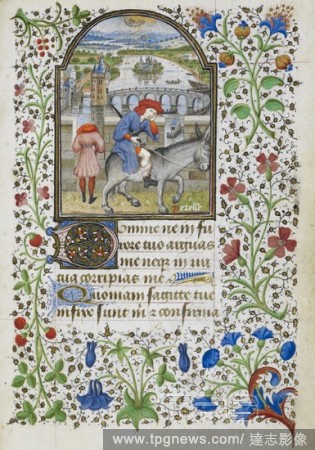 Domine ne in fu
rore tuo arguas
me neq in ira
tua corripias me
Quoniam sagitte tue
infixe sunt m et confirma
www.tpgnews.com/ 達志影像